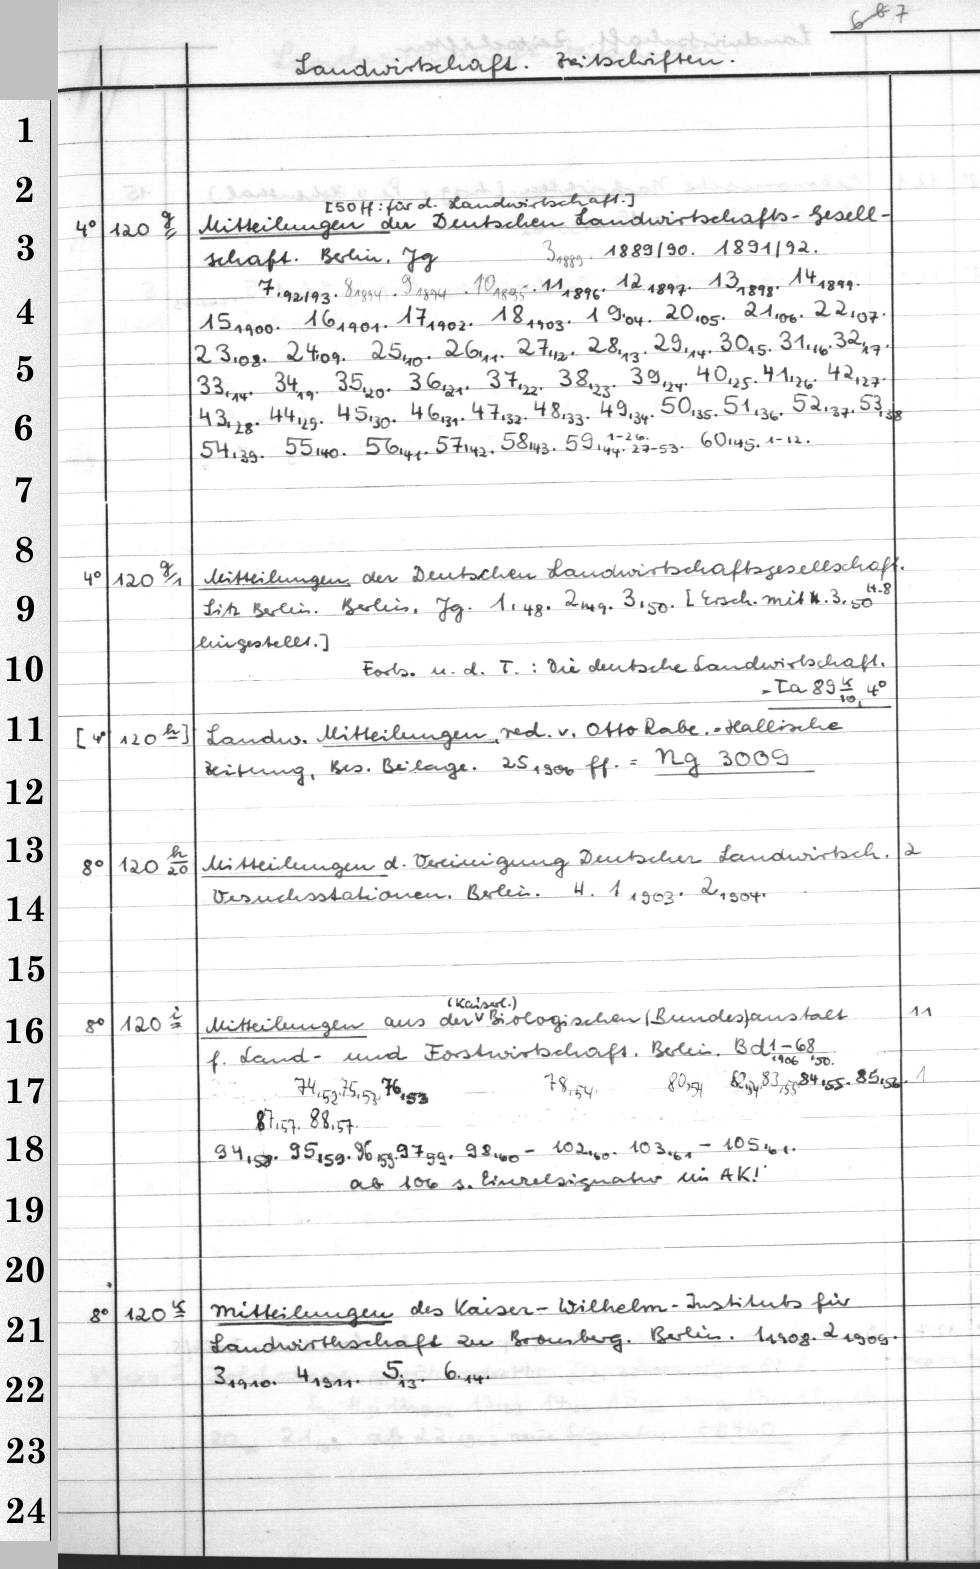 687
Landwirtschaft. Zeitschriften.
1
2
[50 ff: für d. Landwirtschaft.]
4° 120 g/ Mitteilungen der Deutschen Landwirtschafts-Gesell-
3
schaft. Berlin, Jg 3,1889. 1889/90. 1891/92.
7,92/93. 8,1894. 9,1894. 10,1895. 11,1896. 12,1897. 13,1898. 14,1899.
4
15,1900. 16,1901. 17,1902. 18,1903. 19,04. 20,05. 21,06. 22,07.
23,08. 24,09. 25,10. 26,11. 27,12. 28,13. 29,14. 30,15. 31,16. 32,17.
5
33,14. 34,19. 35,20. 36,21. 37,22. 38,23. 39,24. 40,25. 41,26. 42,27.
6
43,28. 44,29. 45,30. 46,31. 47,32. 48,33. 49,34. 50,35. 51,36. 52,37. 53,38
54,39. 55,40. 56,41. 57,42. 58,43. 59,44. 1-26. 27-53. 60,45. 1-12.
7
8
4° 120 g/1 Mitteilungen der Deutschen Landwirtschaftsgesellschaft.
9
Sitz Berlin. Berlin, Jg. 1,48. 2,49. 3,50. [Ersch. mit 3,50 H.8
eingestellt.]
10
Forts. u. d. T.: Die deutsche Landwirtschaft.
= Ta 89 k/10, 4°
11
[4° 120 h] Landw. Mitteilungen, red. v. Otto Rabe. = Hallische
Zeitung, Bes. Beilage. 25,1906 ff. = Ng 3009
12
13
8° 120 h/20 Mitteilungen d. Vereinigung Deutscher Landwirtsch. 2
14
Versuchsstationen. Berlin. H. 1,1903. 2,1904.
15
(Kaiserl.)
16
8° 120 i Mitteilungen aus der Biologischen (Bundes)anstalt 11
f. Land- und Forstwirtschaft. Berlin. Bd 1-68
,1906 ,50.
17
74,52. 75,53. 76,53 78,54. 80,54 82,54. 83,55. 84,55. 85,56. 1
87,57. 88,57.
18
94,58. 95,59. 96,59. 97,99. 98,60 - 102,60. 103,61 - 105,61.
ab 106 s. Einzelsignatur im AK!
19
20
8° 120 k Mitteilungen des Kaiser-Wilhelm-Instituts für
21
Landwirthschaft zu Bromberg. Berlin. 1,1908. 2,1909.
22
3,1910. 4,1911. 5,13. 6,14.
23
24